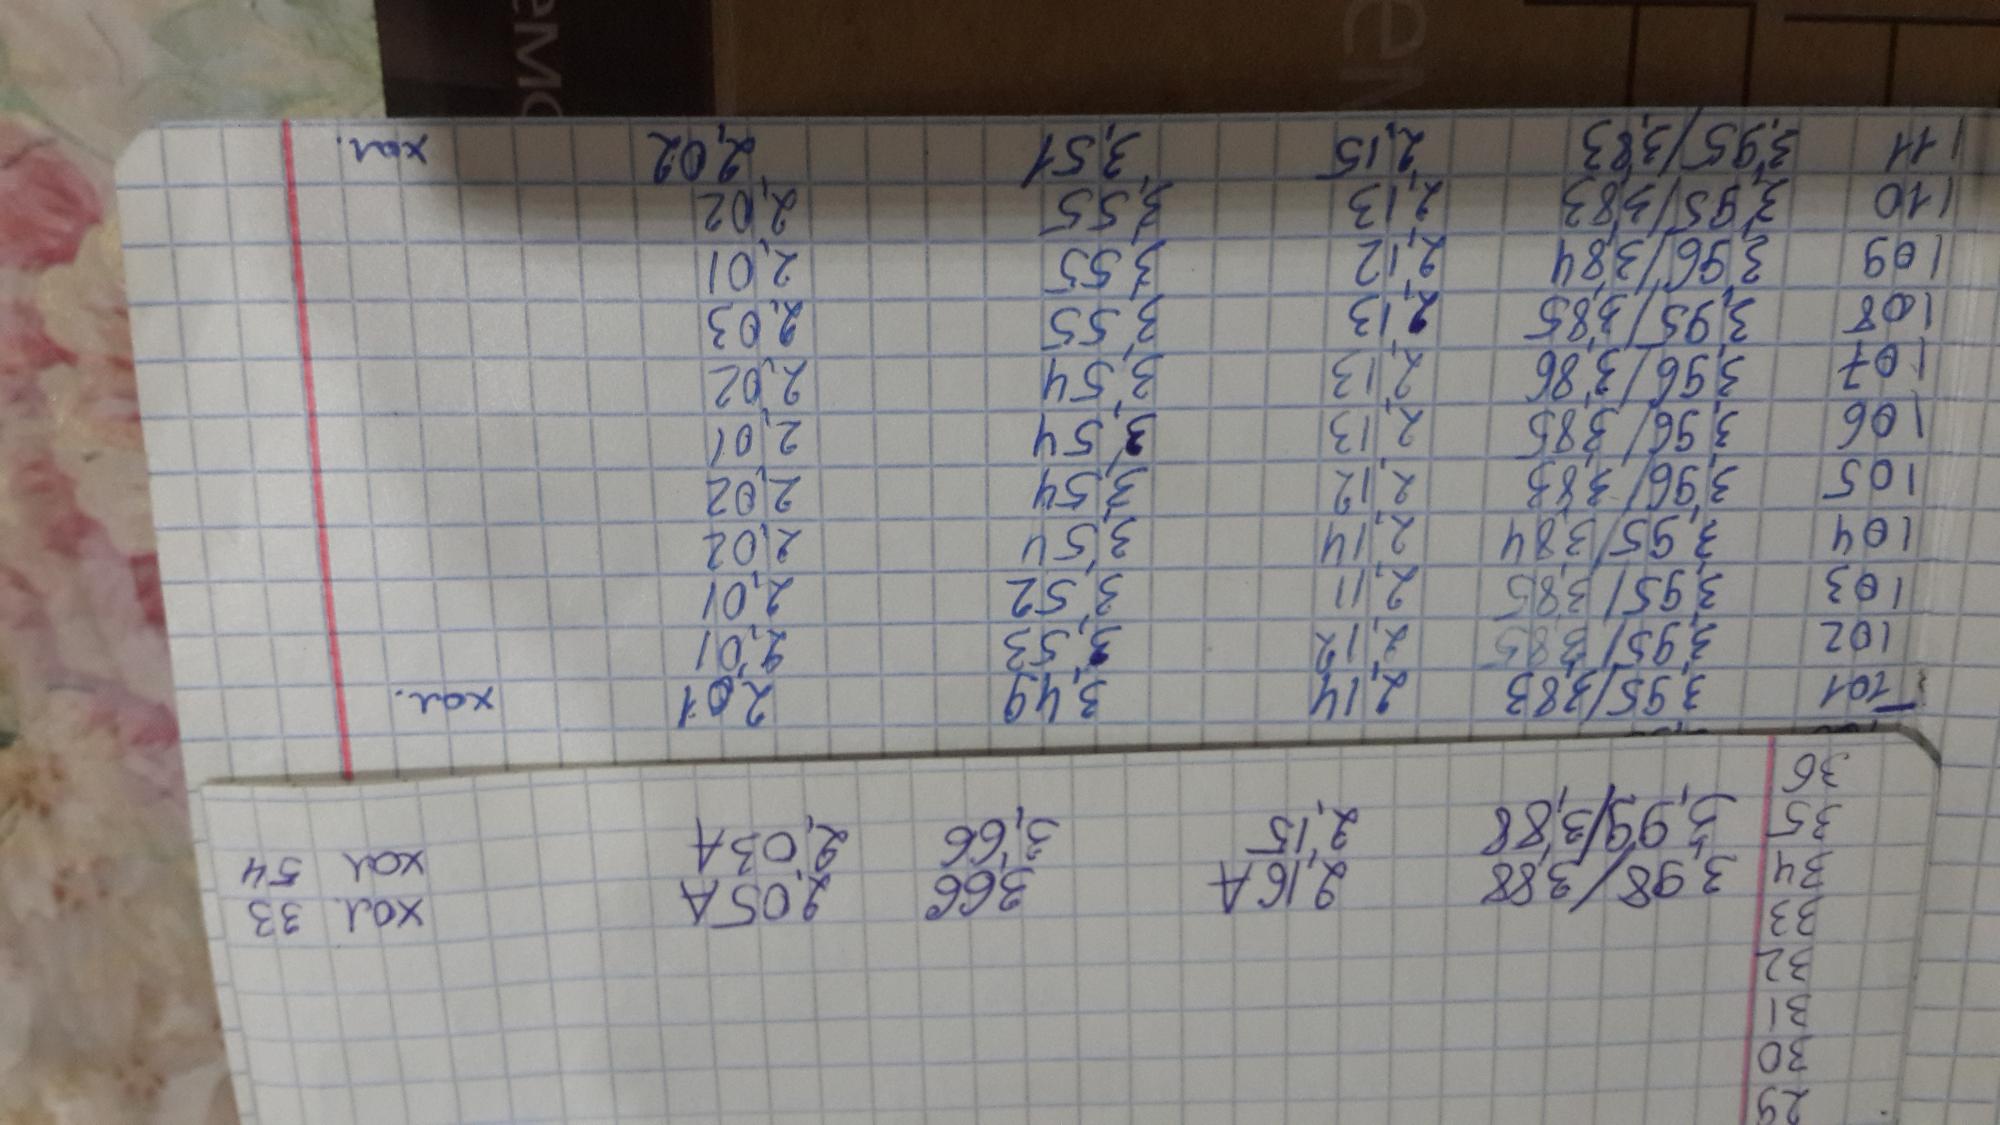 29
30
31
32
33
34 3,98/3,88 2,16А 3,66 2,05А хал. 33
35 3,99/3,88 2,15 3,66 2,03А хал 54
36
101 3,95/3,83 2,14 3,49 2,01 хал.
102 3,95/3,85 2,12 3,53 2,01
103 3,95/3,85 2,11 3,52 2,01
104 3,95/3,84 2,14 3,54 2,02
105 3,96/3,83 2,12 3,54 2,02
106 3,96/3,85 2,13 3,54 2,01
107 3,96/3,86 2,13 3,54 2,02
108 3,95/3,85 2,13 3,55 2,03
109 3,96/3,84 2,12 3,55 2,01
110 3,95/3,83 2,13 3,55 2,02
111 3,95/3,83 2,15 3,51 2,02 хал.